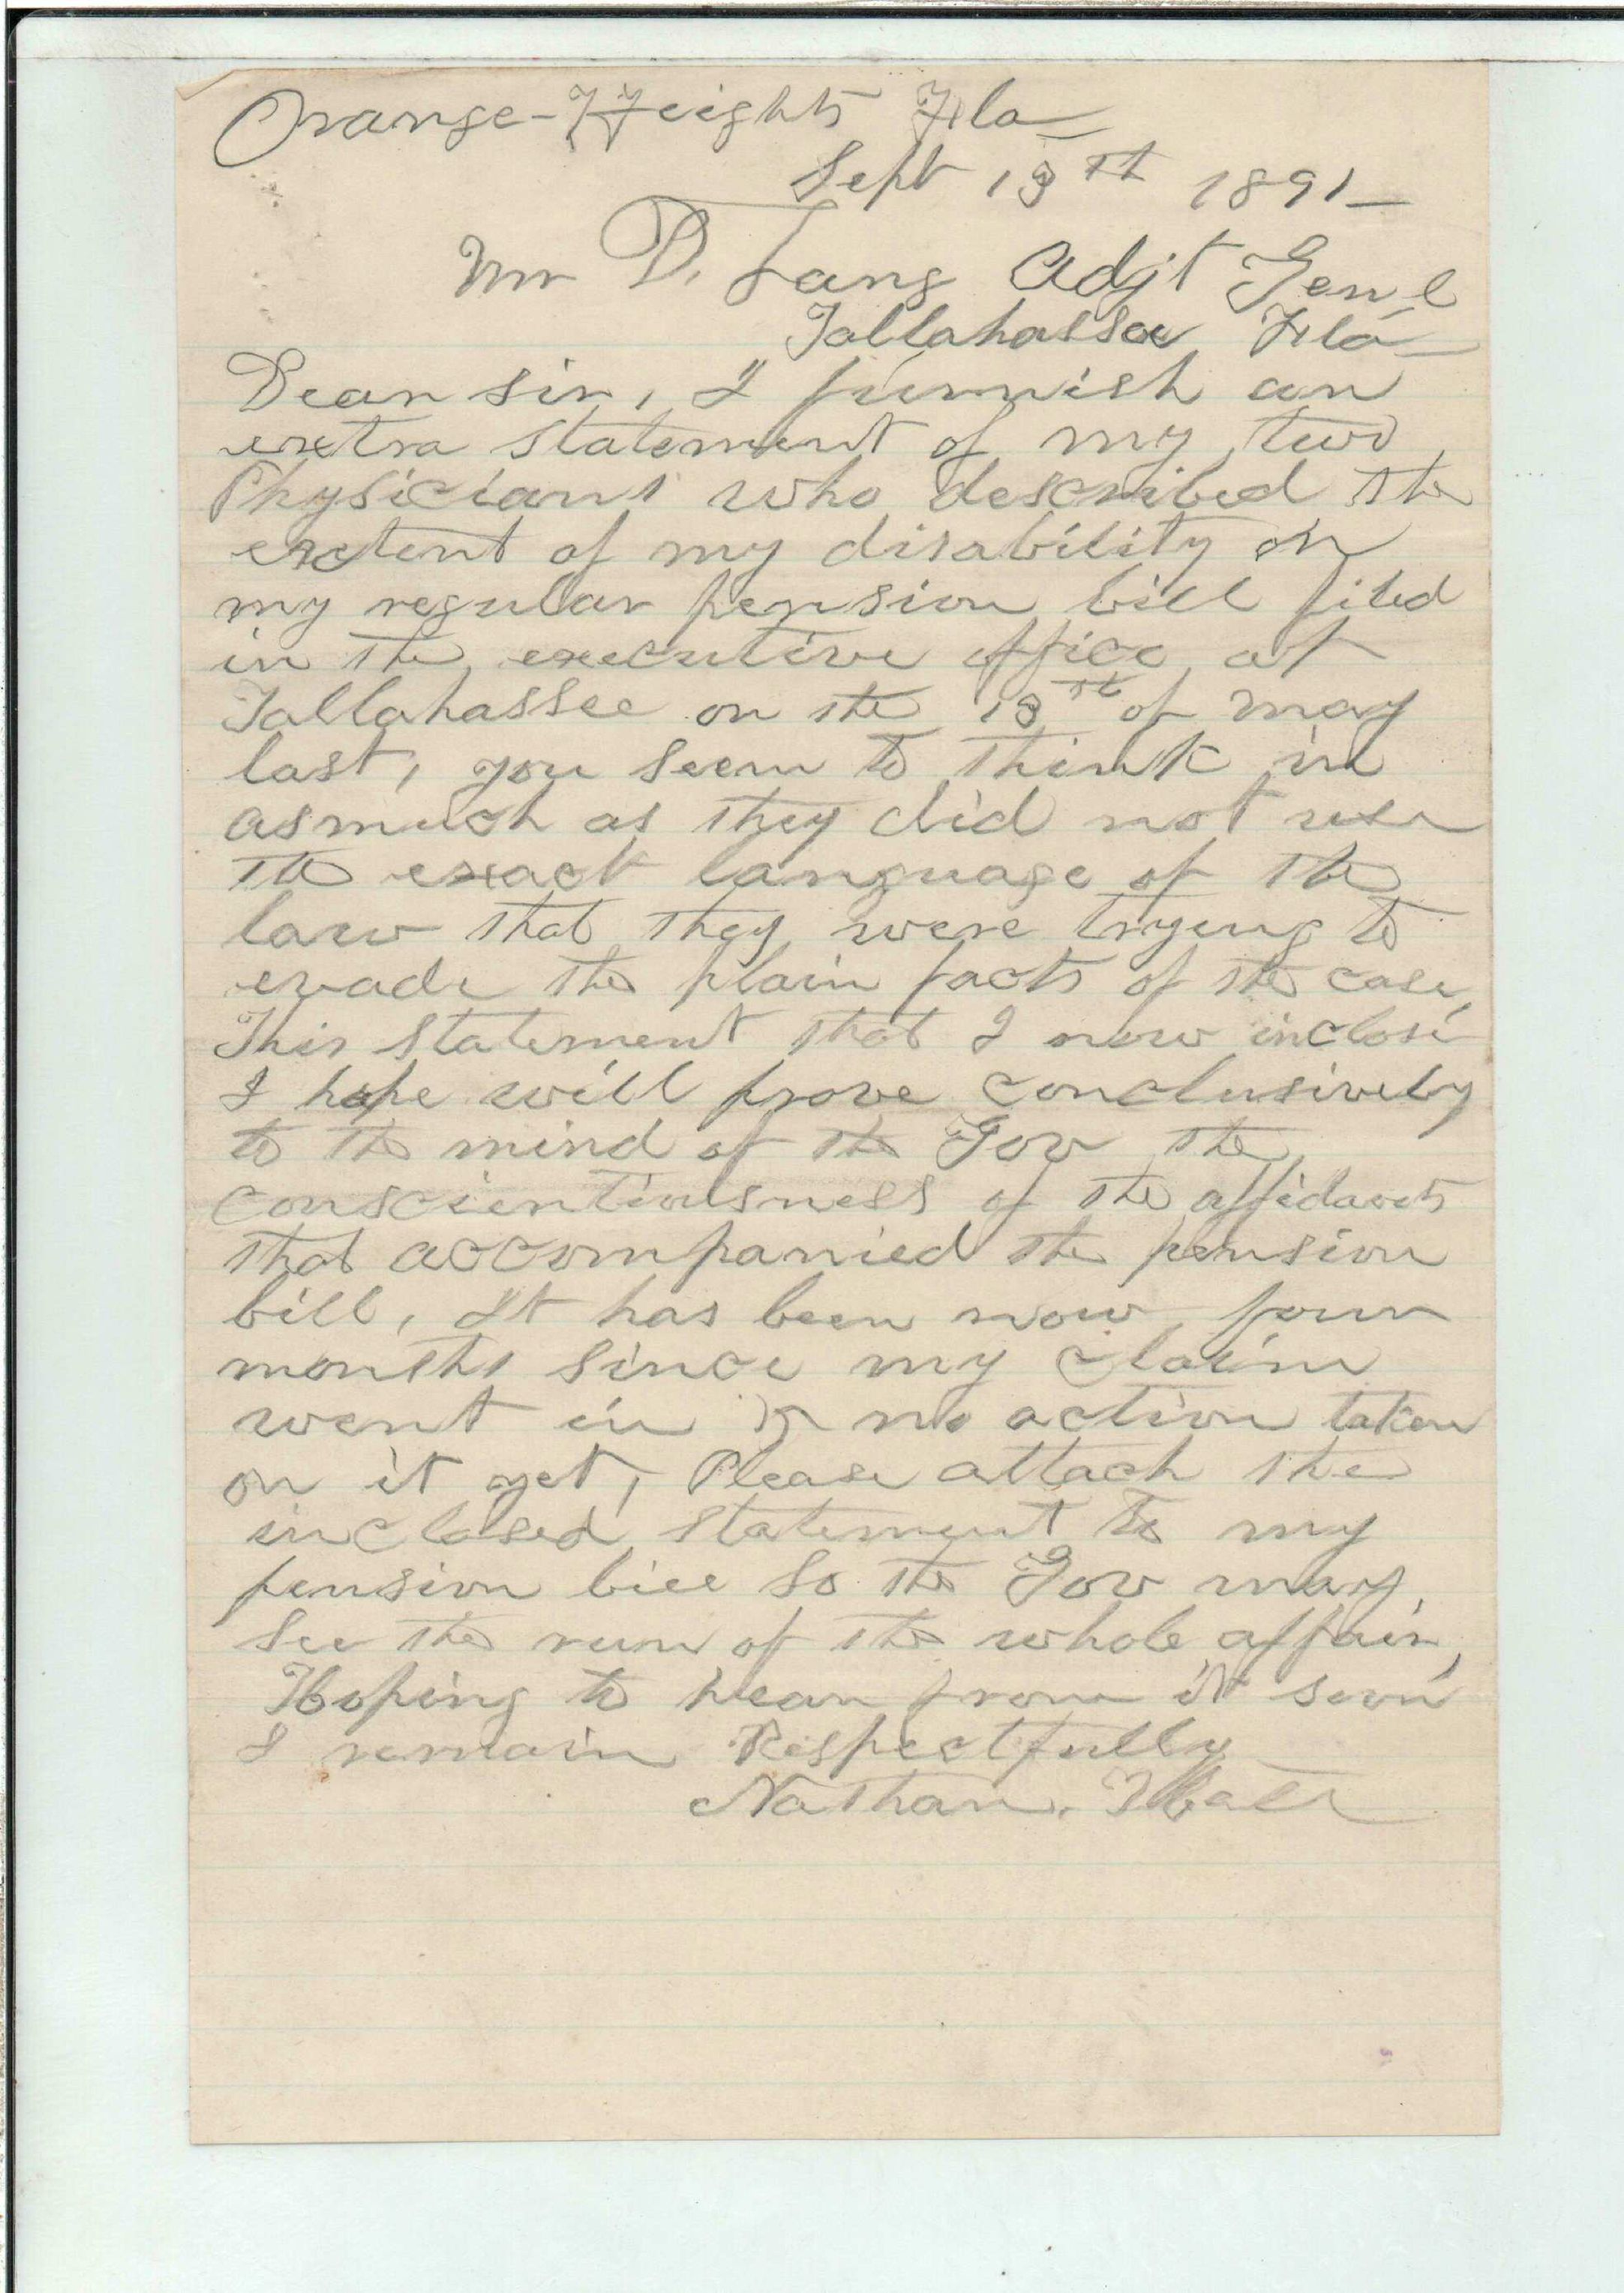 Orange-Heights Fla
Sept 13th 1891
Mr D. Lang Adjt Genl
Tallahassee Fla
Dear sir, I furnish an
extra statement of my two
Physicians who described the
extent of my disability on
my regular pension bill filed
in the executive office at
Tallahassee on the 13th of may
last, you seem to think in
asmuch as they did not use
the exact language of the
law that they were trying to
evade the plain facts of the case,
This statement that I now inclose
I hope will prove conclusively
to the mind of the Gov the
conscientiousness of the affidavits
that accompanied the pension
bill, It has been now four
months since my claim
went in & no action taken
on it yet, Please attach the
inclosed statement to my
pension bill so the Gov may
see the run of the whole affair,
Hoping to hear from it soon
I remain Respectfully
Nathan.